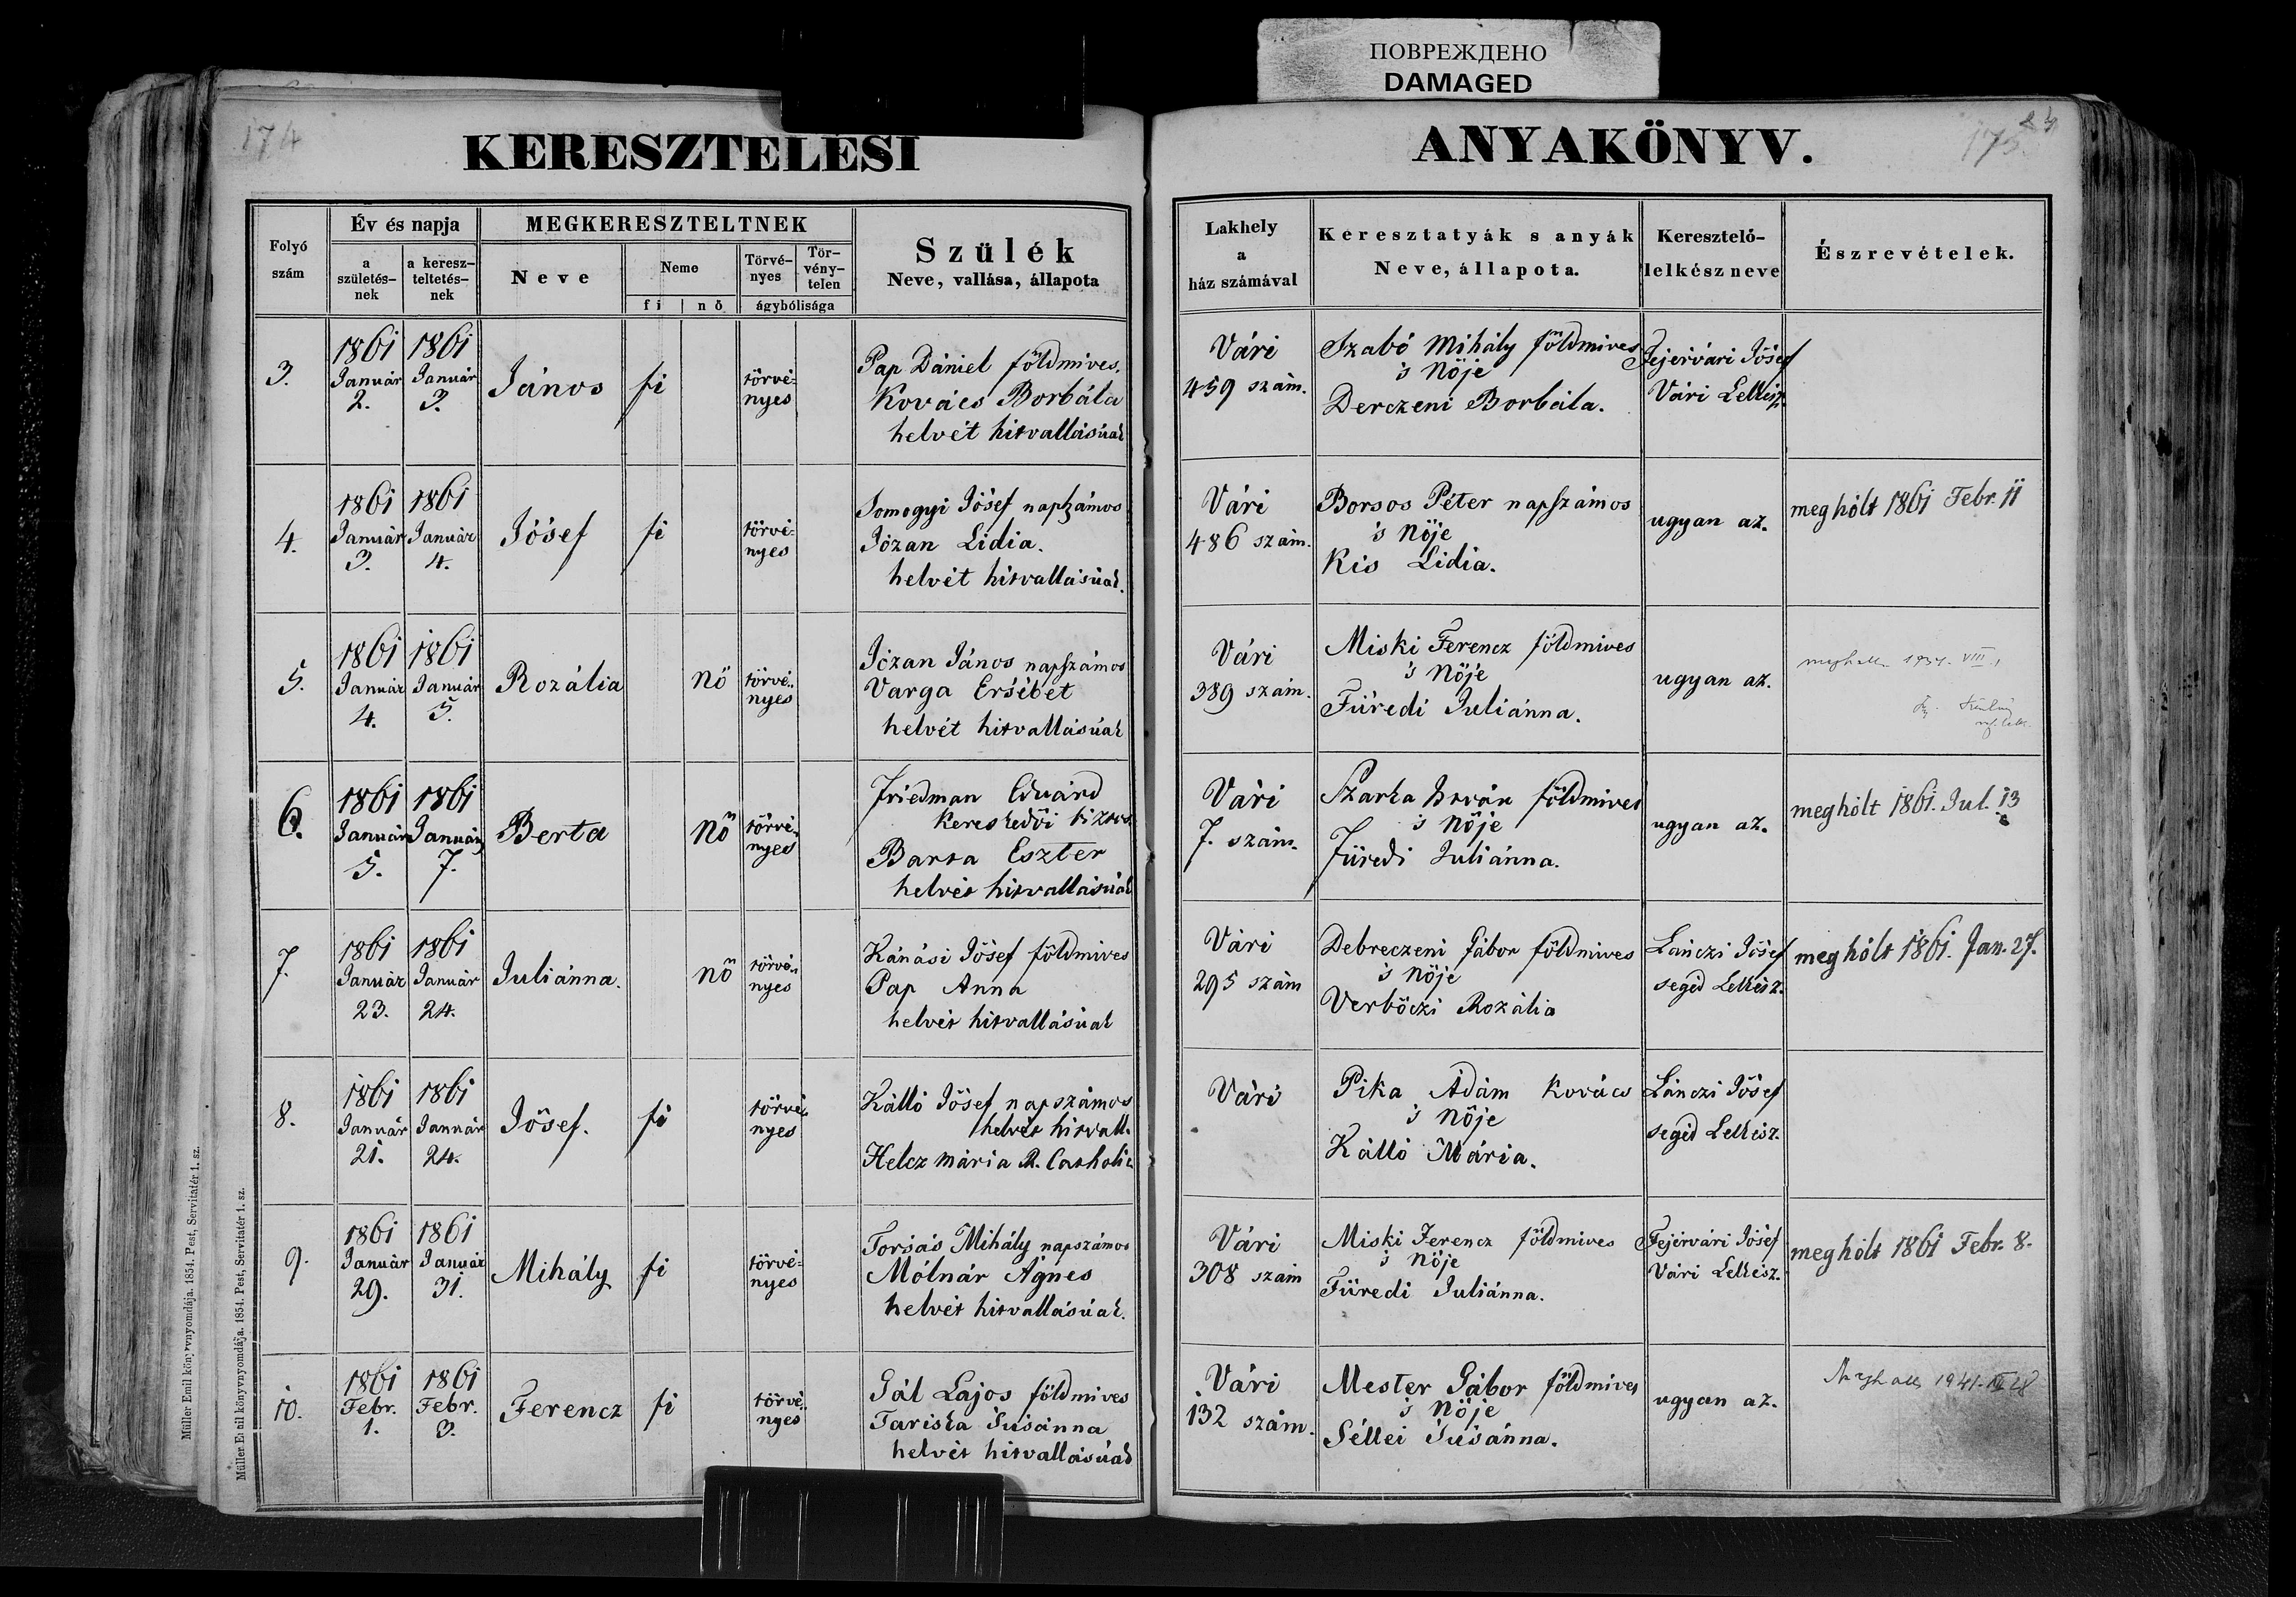 ПОВРЕЖДЕНО
DAMAGED
174
KERESZTELÉSI
Folyó szám
Év és napja
a születés-nek
a keresz-teltetés-nek
MEGKERESZTELTNEK
Neve
Neme
fi
nő
Törvé-nyes
Tör-vény-telen
ágybólisága
Szülék
Neve, vallása, állapota
3.
1861 Január 2.
1861 Január 3.
János
fi
törvé-nyes
Pap Dániel földmives.
Kovács Borbála
helvét hitvallásúak
4.
1861 Január 3.
1861 Január 4.
Jósef
fi
törvé-nyes
Somogyi Jósef napszámos
Józan Lidia.
helvét hitvallásúak.
5.
1861 Január 4.
1861 Január 5.
Rozália
nő
törvé-nyes
Józan János napszámos
Varga Ersébet
helvét hitvallásúak
6.
1861 Január 5.
1861 Január 7.
Berta
nő
törvé-nyes
Friedman Eduárd
kereskedői
Barta Eszter
helvét hitvallásúak
7.
1861 Január 23.
1861 Január 24.
Juliánna.
nő
törvé-nyes
Kánási Jósef földmives
Pap Anna
helvét hitvallásúak
8.
1861 Január 21.
1861 Január 24.
Jósef.
fi
törvé-nyes
Kálló Jósef napszámos
helvét hitvall.
Helcz Mária R. Catholic
9.
1861 Január 29.
1861 Január 31.
Mihály
fi
törvé-nyes
Forsás Mihály napszámos
Mólnár Ágnes
helvét hitvallásúak.
10.
1861 Febr. 1.
1861 Febr. 3.
Ferencz
fi
törvé-nyes
Gál Lajos földmives
Tariska Susánna
helvét hitvallásúak
Müller Emil könyvnyomdája. 1854. Pest, Servitatér 1. sz.
Müller Emil könyvnyomdája. 1854. Pest, Servitatér 1. sz.
ANYAKÖNYV.
175
Lakhely a ház számával
Keresztatyák s anyák
Neve, állapota.
Keresztelő-lelkész neve
Észrevételek.
Vári
459 szám.
Szabó Mihály földmives
's Nője
Derczeni Borbála.
Fejérvári Jósef
Vári Lelkész.
Vári
486 szám.
Borsos Péter napszámos
's Nője
Kis Lidia.
ugyan az.
meghólt 1861 Febr. 11
Vári
389 szám.
Miski Ferencz földmives
's Nője
Füredi Juliánna.
ugyan az.
VIII
Vári
7. szám.
Szarka István földmives
's Nője
Füredi Juliánna.
ugyan az.
meghólt 1861. Jul. 13
Vári
295 szám
Debreczeni Gábor földmives
's Nője
Verbőczi Rozália
Lánczi Jósef
segéd Lelkész.
meghólt 1861. Jan. 27.
Vári
Pika Ádám Kovács
's Nője
Kálló Mária.
Lánczi Jósef
segéd Lelkész.
Vári
308 szám
Miski Ferencz földmives
's Nője
Füredi Juliánna.
Fejérvári Jósef
Vári Lelkész.
meghólt 1861 Febr. 8.
Vári
132 szám.
Mester Gábor földmives
's Nője
Séllei Susánna.
ugyan az.
1941